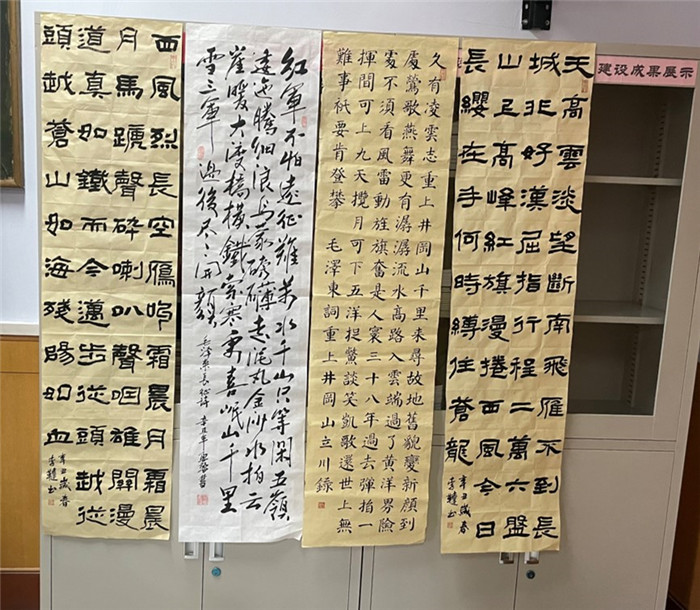 建设成果展示
天高雲淡望斷南飛雁不到長
城非好漢屈指行程二萬六盤
山上高峰紅旗漫捲西風今日
長纓在手何時縛住蒼龍
辛丑歲春
久有凌雲志重上井岡山千里來尋故地舊貌變新顏到
處鶯歌燕舞更有潺潺流水高路入雲端過了黃洋界險
處不須看風雷動旌旗奮是人寰三十八年過去彈指一
揮間可上九天攬月可下五洋捉鱉談笑凱歌還世上無
難事衹要肯登攀 毛澤東詞重上井岡山立川錄
紅軍不怕遠征難萬水千山只等閑五嶺
逶迤騰細浪烏蒙磅礴走泥丸金沙水拍云
崖暖大渡橋橫鐵索寒更喜岷山千里
雪三軍過後盡開顏
毛澤東長征詩 辛丑年
西風烈長空鴈叫霜晨月霜晨
月馬蹄聲碎喇叭聲咽雄關漫
道真如鐵而今邁步從頭越從
頭越蒼山如海殘陽如血
辛丑歲春